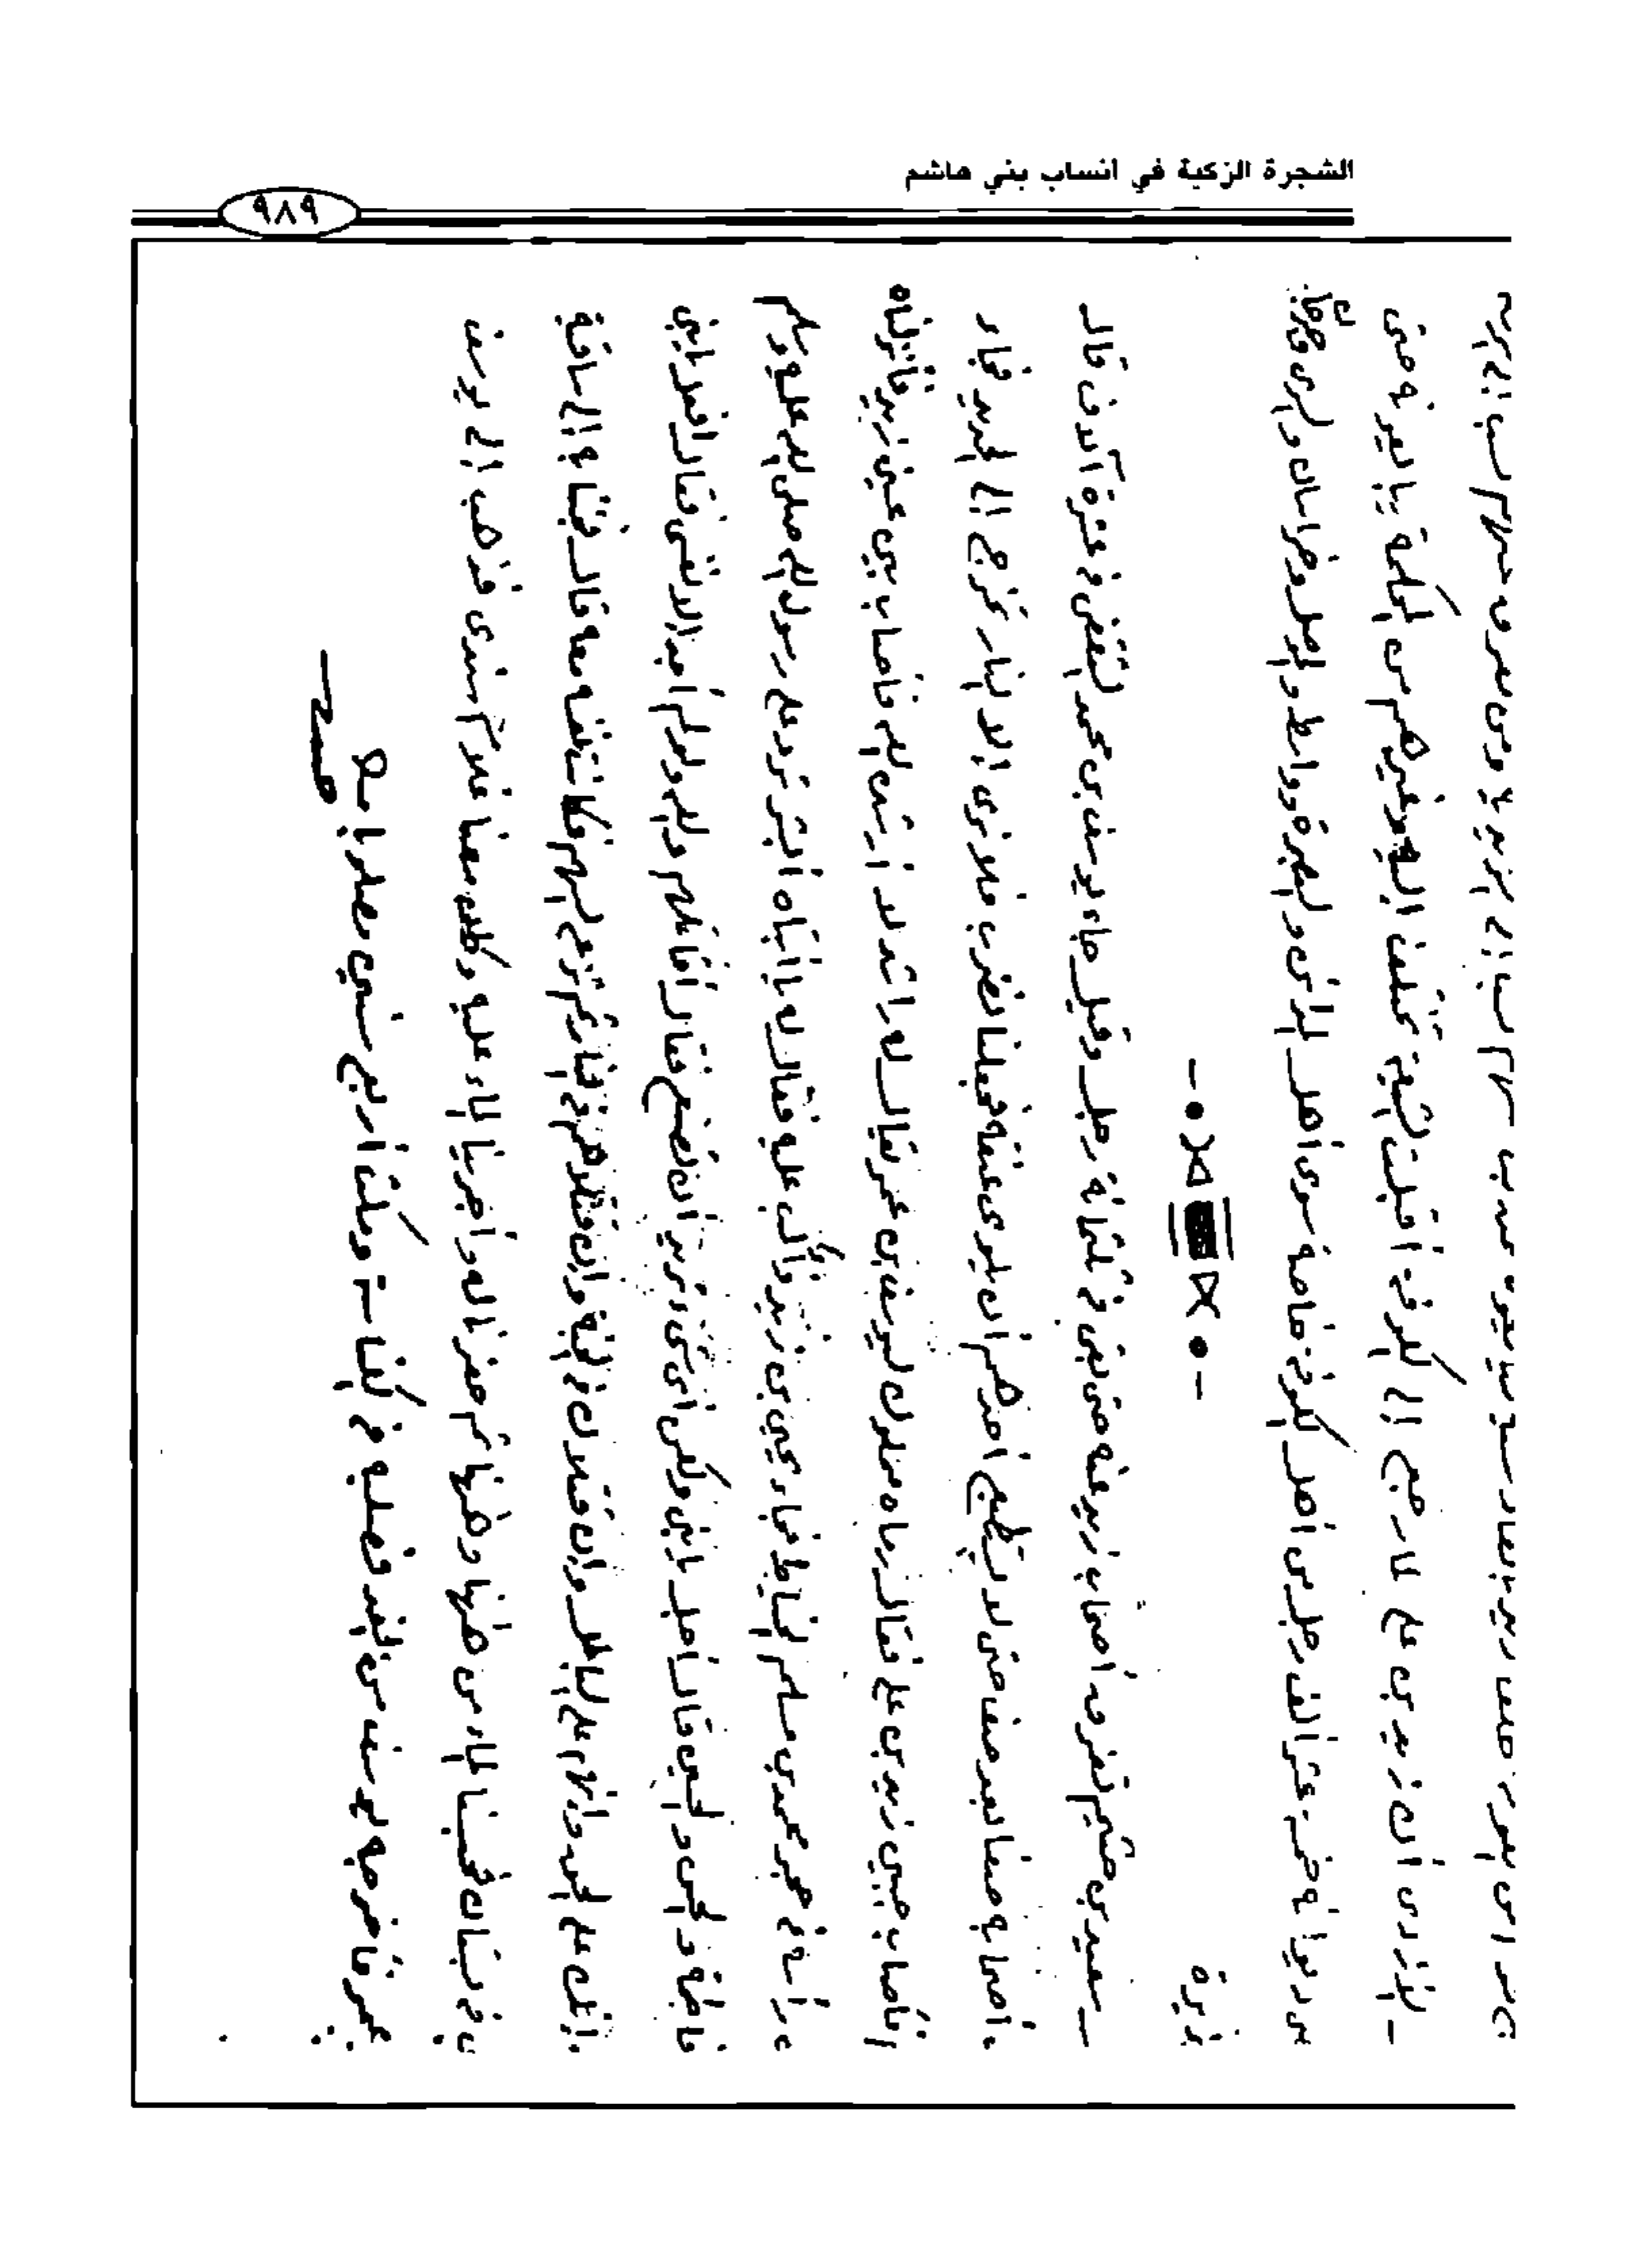 الشجرة الزكية في انساب بني هاشم
٩٨٩
الأزدي أن زيد بن علي لما رجع الى الكوفة اقبلت الشيعة تختلف اليه وغيرهم من المحكمة يبايعونه حتى
ديوانه خمسة عشر الف رجل من اهل الكوفة خاصة سوى أهل المدائن والبصرة وواسط والموصل وخراسان والري وجرجان
سعيد بن خثيم تفرق أصحاب زيد عنه حتى بقي في ثلثمائة رجل وقيل جاء يوسف بن عمر الثقفي في عشرة آلاف قال
أصحابه صفا بعد صف حتى لا يستطيع احدهم ان يلوي عنقه فجعلنا نضرب فلا نرى الا النار تخرج الى الحديد فجاء
فأصاب جبين زيد بن علي فقال رماه مملوك ليوسف بن عمر يقال له راشد فأصاب بين عيني زيد فأنزلناه
رأسه في حجر محمد بن مسلم الخياط فجاء يحيى بن زيد فأكب عليه فقال له يا ابتاه أبشر ترد على رسول الله صلى الله عليه وسلم
فاطمة والحسن والحسين قال اجل يا بني ولكن أي شيء تريد ان تصنع فقال أقاتلهم والله ولو لم أجد الا نفسي فقال افعل يا بني
انك على الحق وانهم على الباطل وان قتلاك في الجنة وان قتلاهم في النار ثم نزع السهم فكانت نفسه معه قال فجئنا به الى ساقية
في بستان فحبسنا الماء من هاهنا وهاهنا ثم حفرنا له وأجرينا الماء عليه وكان معنا غلام سندي فذهب الى يوسف
عمر فأخرجه يوسف من القبر فصلبه في الكناسة ومكث أربع سنين مصلوبا